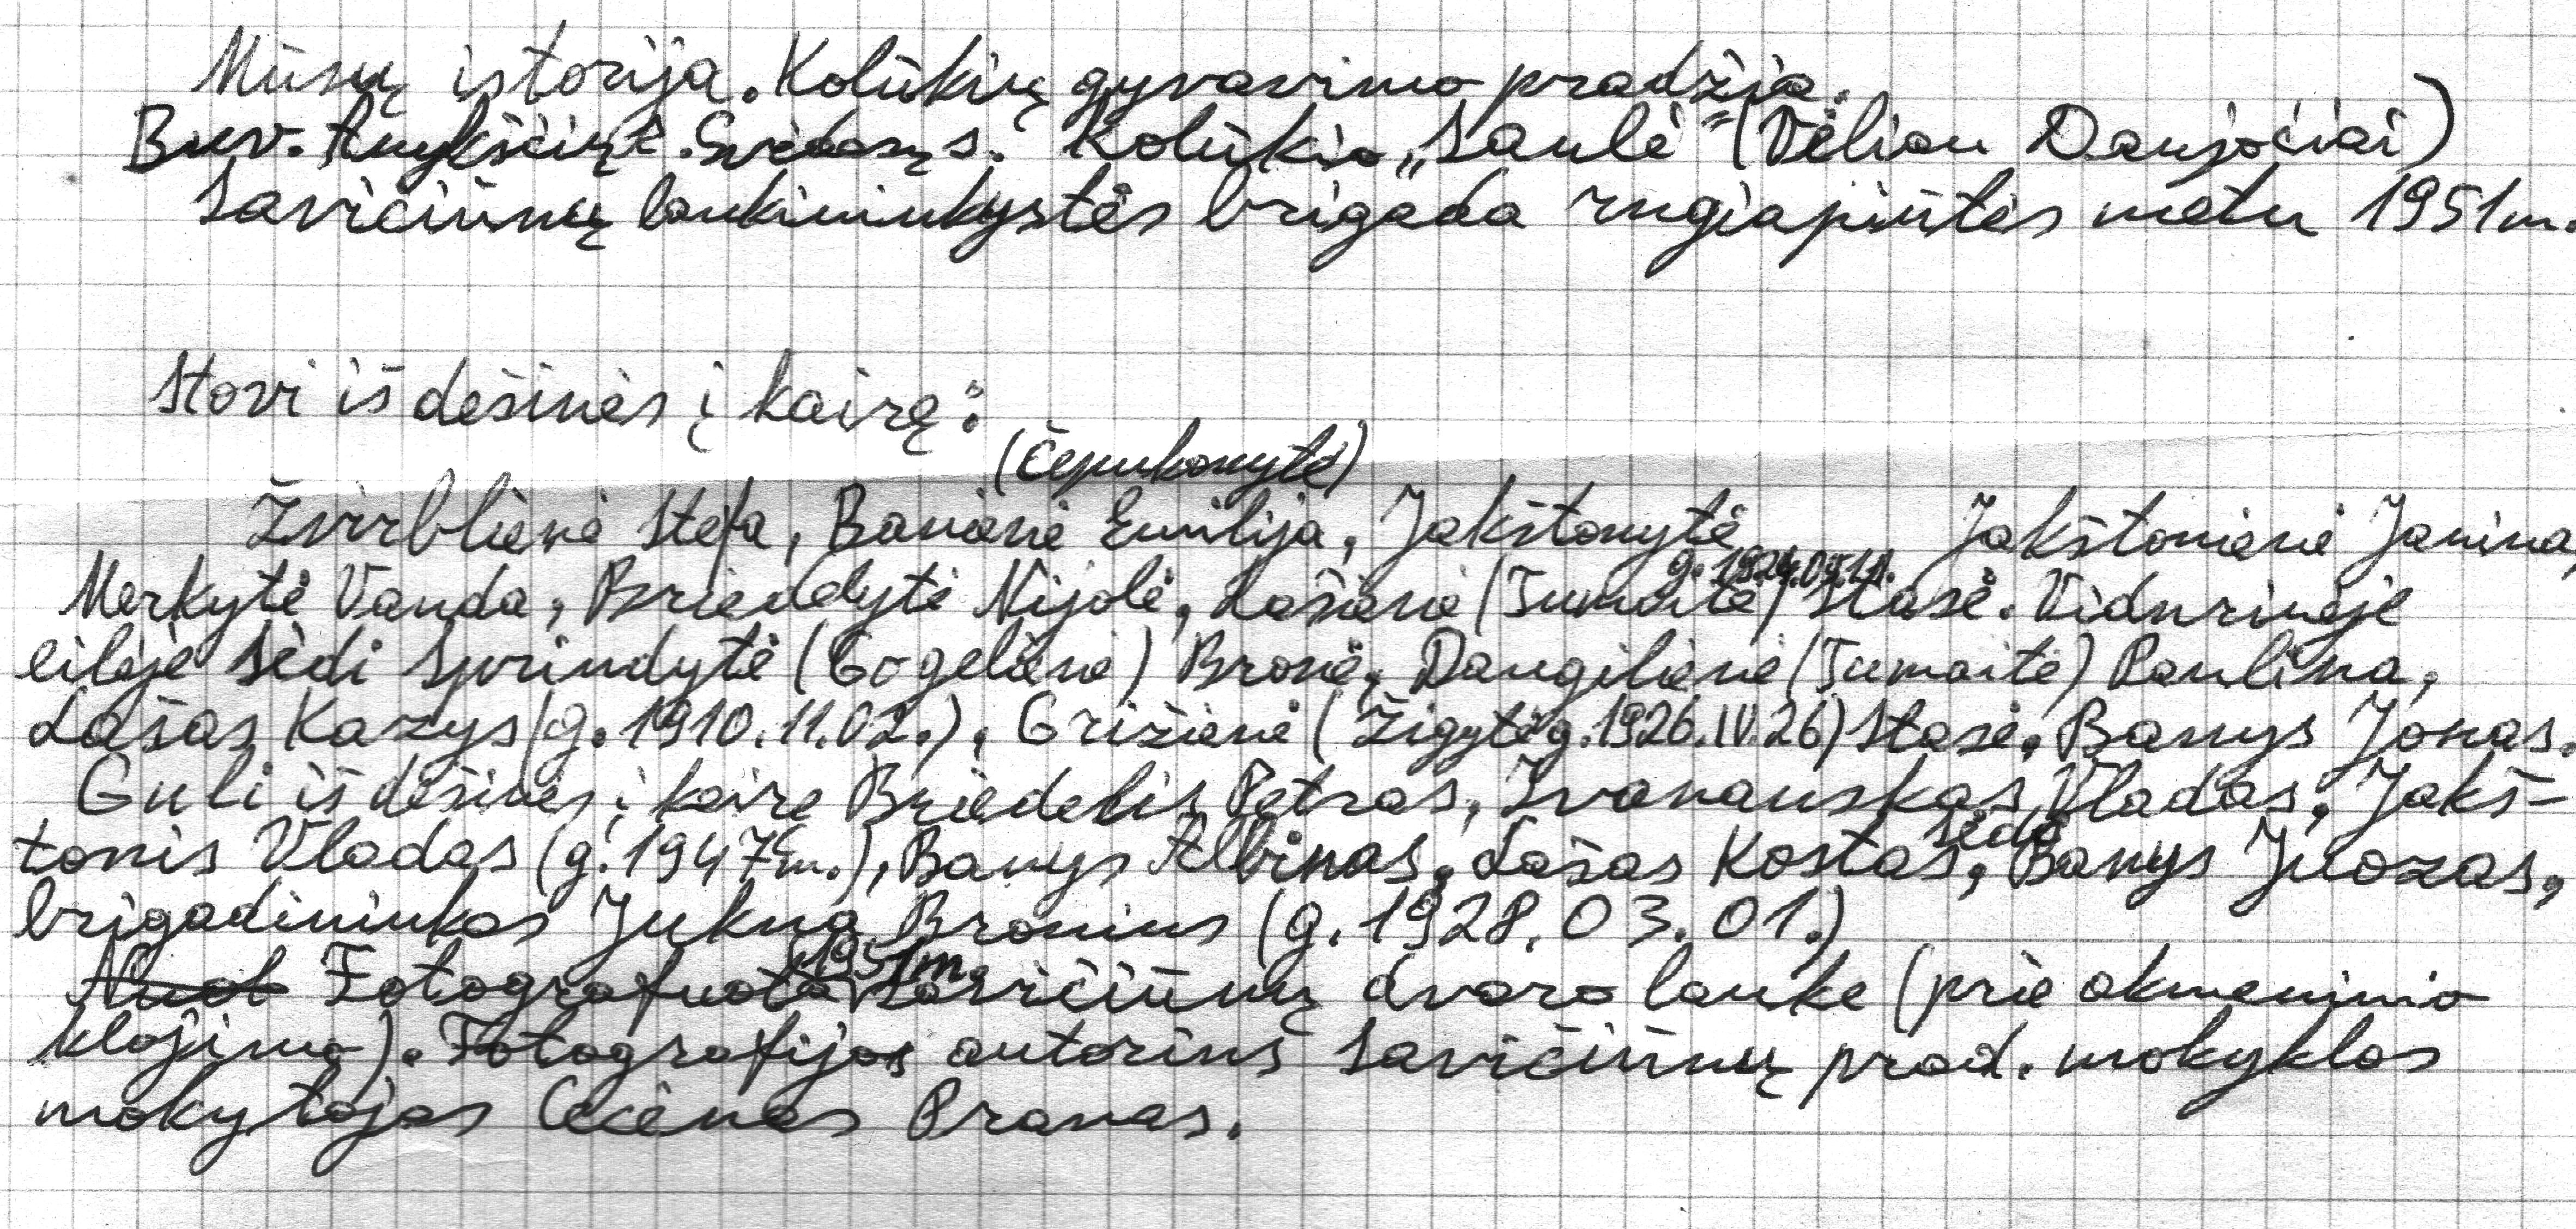 Mūsų istorija. Kolūkių gyvavimo pradžia.
Buv. Anykščių r. Svėdasų s. Kolūkio „Saulė" (Vėliau Daujočiai)
Savičiūnų laukininkystės brigada rugiapiūtės metu 1951m.
Stovi iš dešinės į kairę:
(Čepukonytė)
Žvirblienė Stefa, Banienė Emilija, Jakštonytė Jakštonienė Janina,
g. 1924.
Merkytė Vanda, Briedelytė Nijolė, Lašienė (Tumaitė) Stasė. Vidurinėje
eilėje sėdi Sprindytė (Gogelienė) Bronė, Daugilienė (Tumaitė) Paulina,
Lašas Kazys (g. 1910.11.02.), Grižienė (Žigytė g. 1926.IV.26) Stasė, Banys Jonas.
Guli iš dešinės į kairę Briedelis Petras, Ivanauskas Vladas, Jakš-
sėdi
tonis Vladas (g. 1947m.), Banys Albinas, Lašas Kostas, Banys Juozas,
brigadininkas Jukna Bronius (g. 1928.03.01.)
1951m.
Nuot Fotografuota Savičiūnų dvaro lauke (prie akmeninio
klojimo). Fotografijos autorius Savičiūnų prad. mokyklos
mokytojas Cecėnas Pranas.